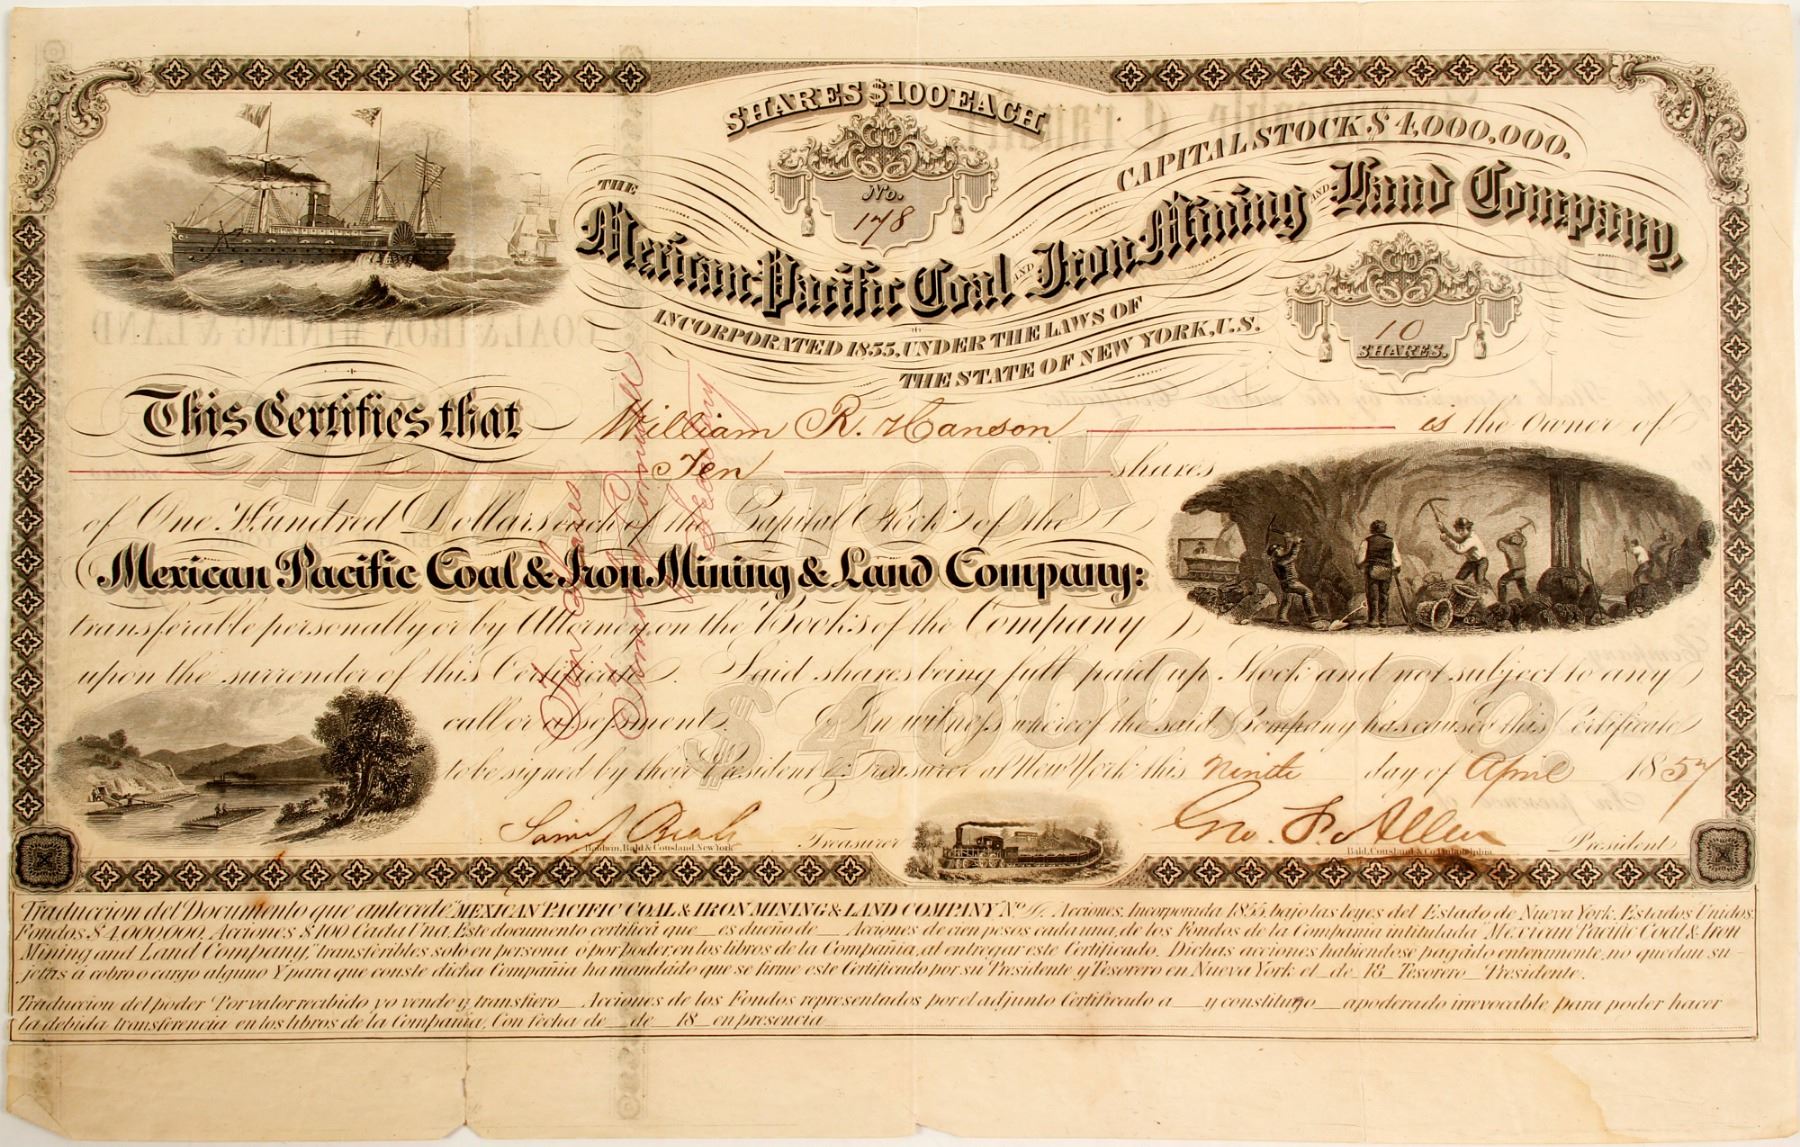 SHARES $100 EACH
CAPITAL STOCK $4,000,000.
No.
178
THE
Mexican Pacific Coal AND Iron Mining AND Land Company,
INCORPORATED 1855, UNDER THE LAWS OF
THE STATE OF NEW YORK, U.S.
10
SHARES.
This Certifies that William R. Hanson is the Owner of
Ten shares
of One Hundred Dollars each of the Capital Stock of the
CAPITAL STOCK
Mexican Pacific Coal & Iron Mining & Land Company:
transferable personally or by Attorney, on the Books of the Company
upon the surrender of this Certificate. Said shares being full paid up Stock and not subject to any
call or assessment. In witness whereof the said Company has caused this Certificate
$4,000,000.
to be signed by their President & Treasurer at New York this Ninth day of April 1857
Treasurer
Geo. F. Allen President
Baldwin, Bald & Cousland, New York
Bald, Cousland & Co. Philadelphia
Ten Shares
Traduccion del Documento que antecede "MEXICAN PACIFIC COAL & IRON MINING & LAND COMPANY No. Acciones, Incorporada 1855, bajo las leyes del Estado de Nueva York, Estados Unidos.
Fondos $4,000,000, Acciones $100 Cada Una. Este documento certifica que _ es dueño de _ Acciones de cien pesos cada una, de los Fondos de la Compañia intitulada "Mexican Pacific Coal & Iron
Mining and Land Company," transferibles solo en persona ó por poder, en los libros de la Compañia, al entregar este Certificado. Dichas acciones habiendose pagado enteramente, no quedan su-
jetas á cobro o cargo alguno Y para que conste dicha Compañia ha mandado que se firme este Certificado por su Presidente y Tesorero en Nueva York el _ de 18 _ Tesorero _ Presidente.
Traduccion del poder Por valor recibido yo vendo y transfiero _ Acciones de los Fondos representados por el adjunto Certificado a _ y constituyo _ apoderado irrevocable para poder hacer
la debida transferencia en los libros de la Compañia, Con fecha de _ de 18 _ en presencia